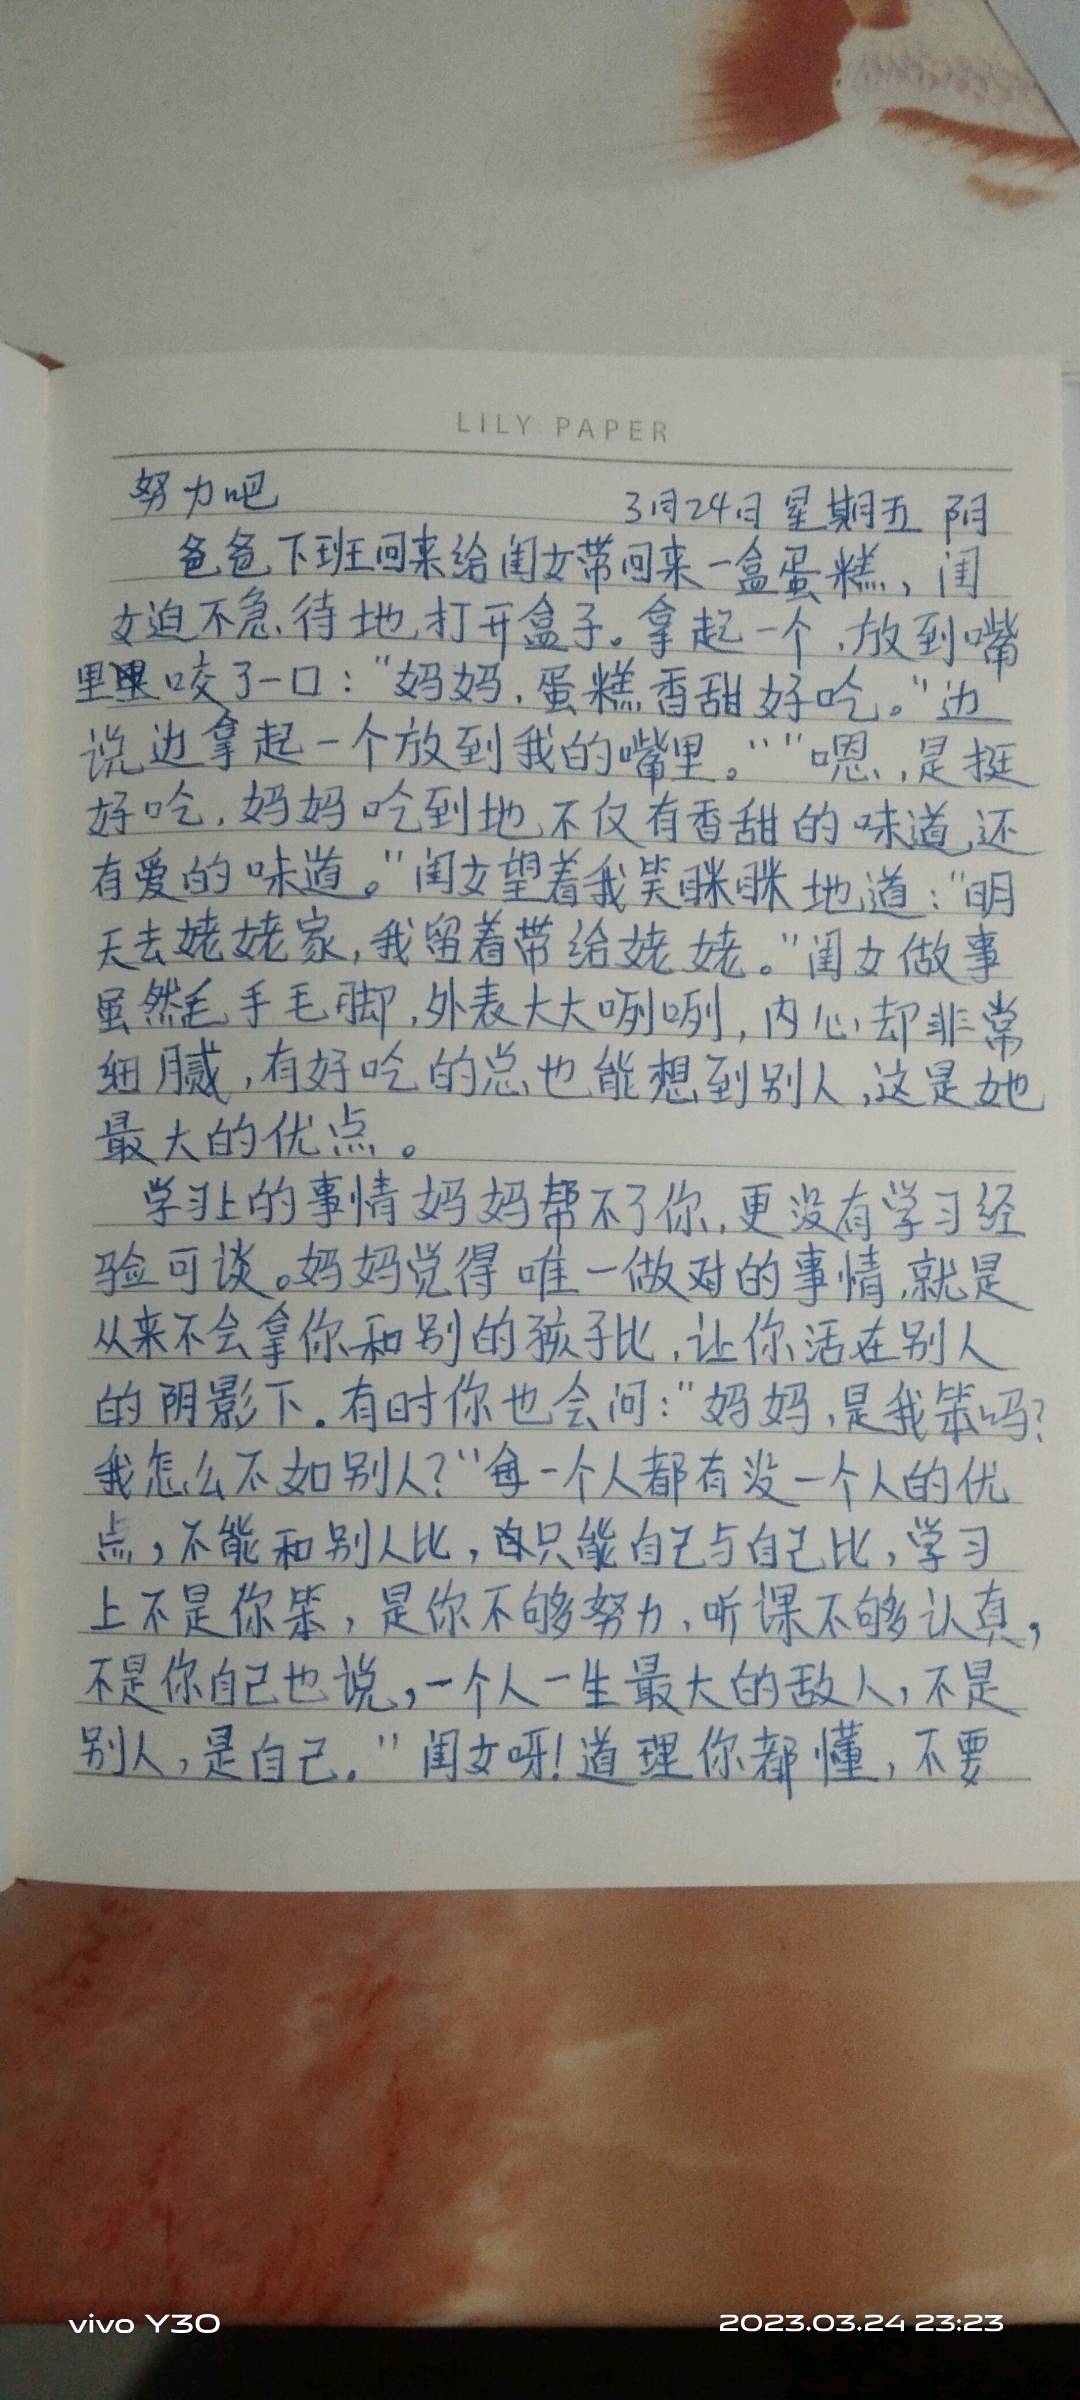 LILY PAPER
努力吧
3月24日 星期五 阴
爸爸下班回来给闺女带回来一盒蛋糕，闺
女迫不急待地打开盒子。拿起一个，放到嘴
里咬了一口：“妈妈，蛋糕香甜好吃。”边
说边拿起一个放到我的嘴里。“”嗯，是挺
好吃，妈妈吃到地不仅有香甜的味道，还
有爱的味道。”闺女望着我笑眯眯地道：“明
天去姥姥家，我留着带给姥姥。”闺女做事
虽然毛手毛脚，外表大大咧咧，内心却非常
细腻，有好吃的总也能想到别人，这是她
最大的优点。
学习上的事情妈妈帮不了你，更没有学习经
验可谈。妈妈觉得唯一做对的事情，就是
从来不会拿你和别的孩子比，让你活在别人
的阴影下．有时你也会问：“妈妈，是我笨吗？
我怎么不如别人？“每一个人都有没一个人的优
点，不能和别人比，只能自己与自己比，学习
上不是你笨，是你不够努力，听课不够认真，
不是你自己也说，一个人一生最大的敌人，不是
别人，是自己．”闺女呀！道理你都懂，不要
vivo Y30
2023.03.24 23:23